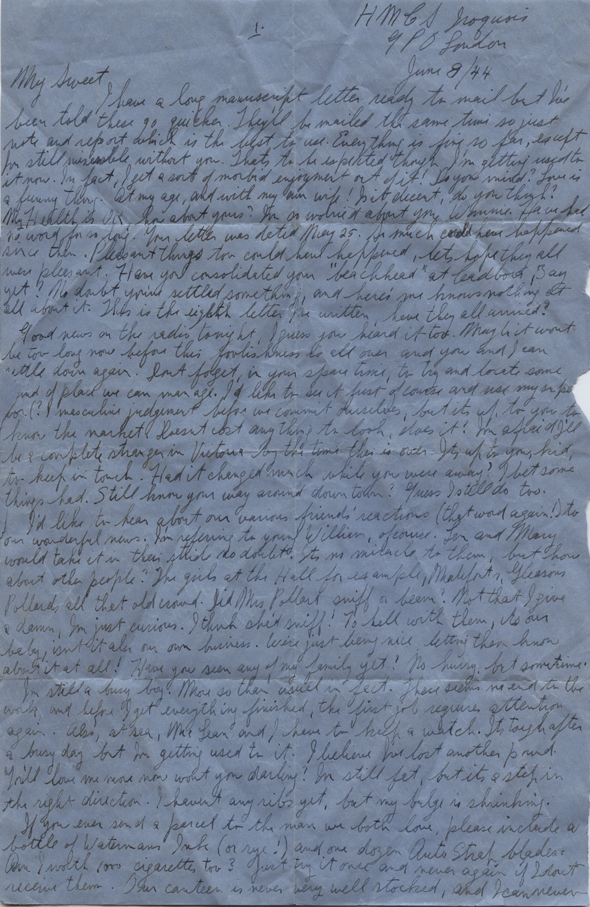 1.
HMCS Iroquois
GPO London
June 8/44
My Sweet
I have a long manuscript letter ready to mail but I've
been told these go quicker. They'll be mailed the same time so just
note and report which is the best to use. Everything is fine so far, except
I'm still miserable without you. That's to be expected though. I'm getting used to
it now. In fact, I get a sort of morbid enjoyment out of it! Do you mind? Love is
a funny thing at my age, and with my own wife! Is it decent, do you think?
My Health is O.K. How about yours? I'm so worried about you, I have had
no word for so long. Your letter was dated May 25. So much could have happened
since then. Pleasant things too could have happened, let's hope they all
were pleasant. Have you consolidated your "beachhead" at
yet? No doubt you've settled something, and here's me knows nothing at
all about it. This is the eighth letter I've written have they all arrived?
Good news on the radio tonight, I guess you heard it too. May be it won't
be too long now before this foolishness is all over and you and I can
settle down again. Don't forget, in your spare time, to try and locate some
kind of place we can manage. I'd like to see it first of course and use my
(?) masculine judgment before we commit ourselves, but it's up to you to
know the market. Doesn't cost anything to look, does it? I'm afraid I'll
be a complete stranger in Victoria by the time this is over. It's up to you, kid,
to keep in touch. Had it changed much while you were away? I bet some
things had. Still know your way around downtown? Guess I still do too.
I'd like to hear about our various friends' reactions (that word again!) to
our wonderful news. I'm referring to young William, of course. Len and Mary
would take it in their stride no doubt. It's no miracle to them, but how
about other people? The girls at the Hall for example, Gleasons
Pollards, all that old crowd. Did Mrs Pollard sniff a bit? Not that I give
a damn, I'm just curious. I think she'd sniff! To hell with them, it's our
baby, isn't it also our own business. We're just being nice letting them know
about it at all! Have you seen any of my family yet? No hurry, but sometime.
I'm still a busy boy! More so than usual in fact. There seems no end to the
work, and before I get everything finished, the first job requires attention
again. Also, at sea, Mr. Sean and I have to keep a watch. It's tough after
a busy day but I'm getting used to it. I believe I've lost another pound.
You'll love me more now won't you darling? I'm still fat, but it's a step in
the right direction. I haven't any ribs yet, but my bulge is shrinking.
If you ever send a parcel to the man we both love, please include a
bottle of Watermans Ink (or rye!) and one dozen Auto Strop blades.
Am I worth 1000 cigarettes too? Just try it once and never again if I don't
receive them. Our canteen is never very well stocked, and I can never